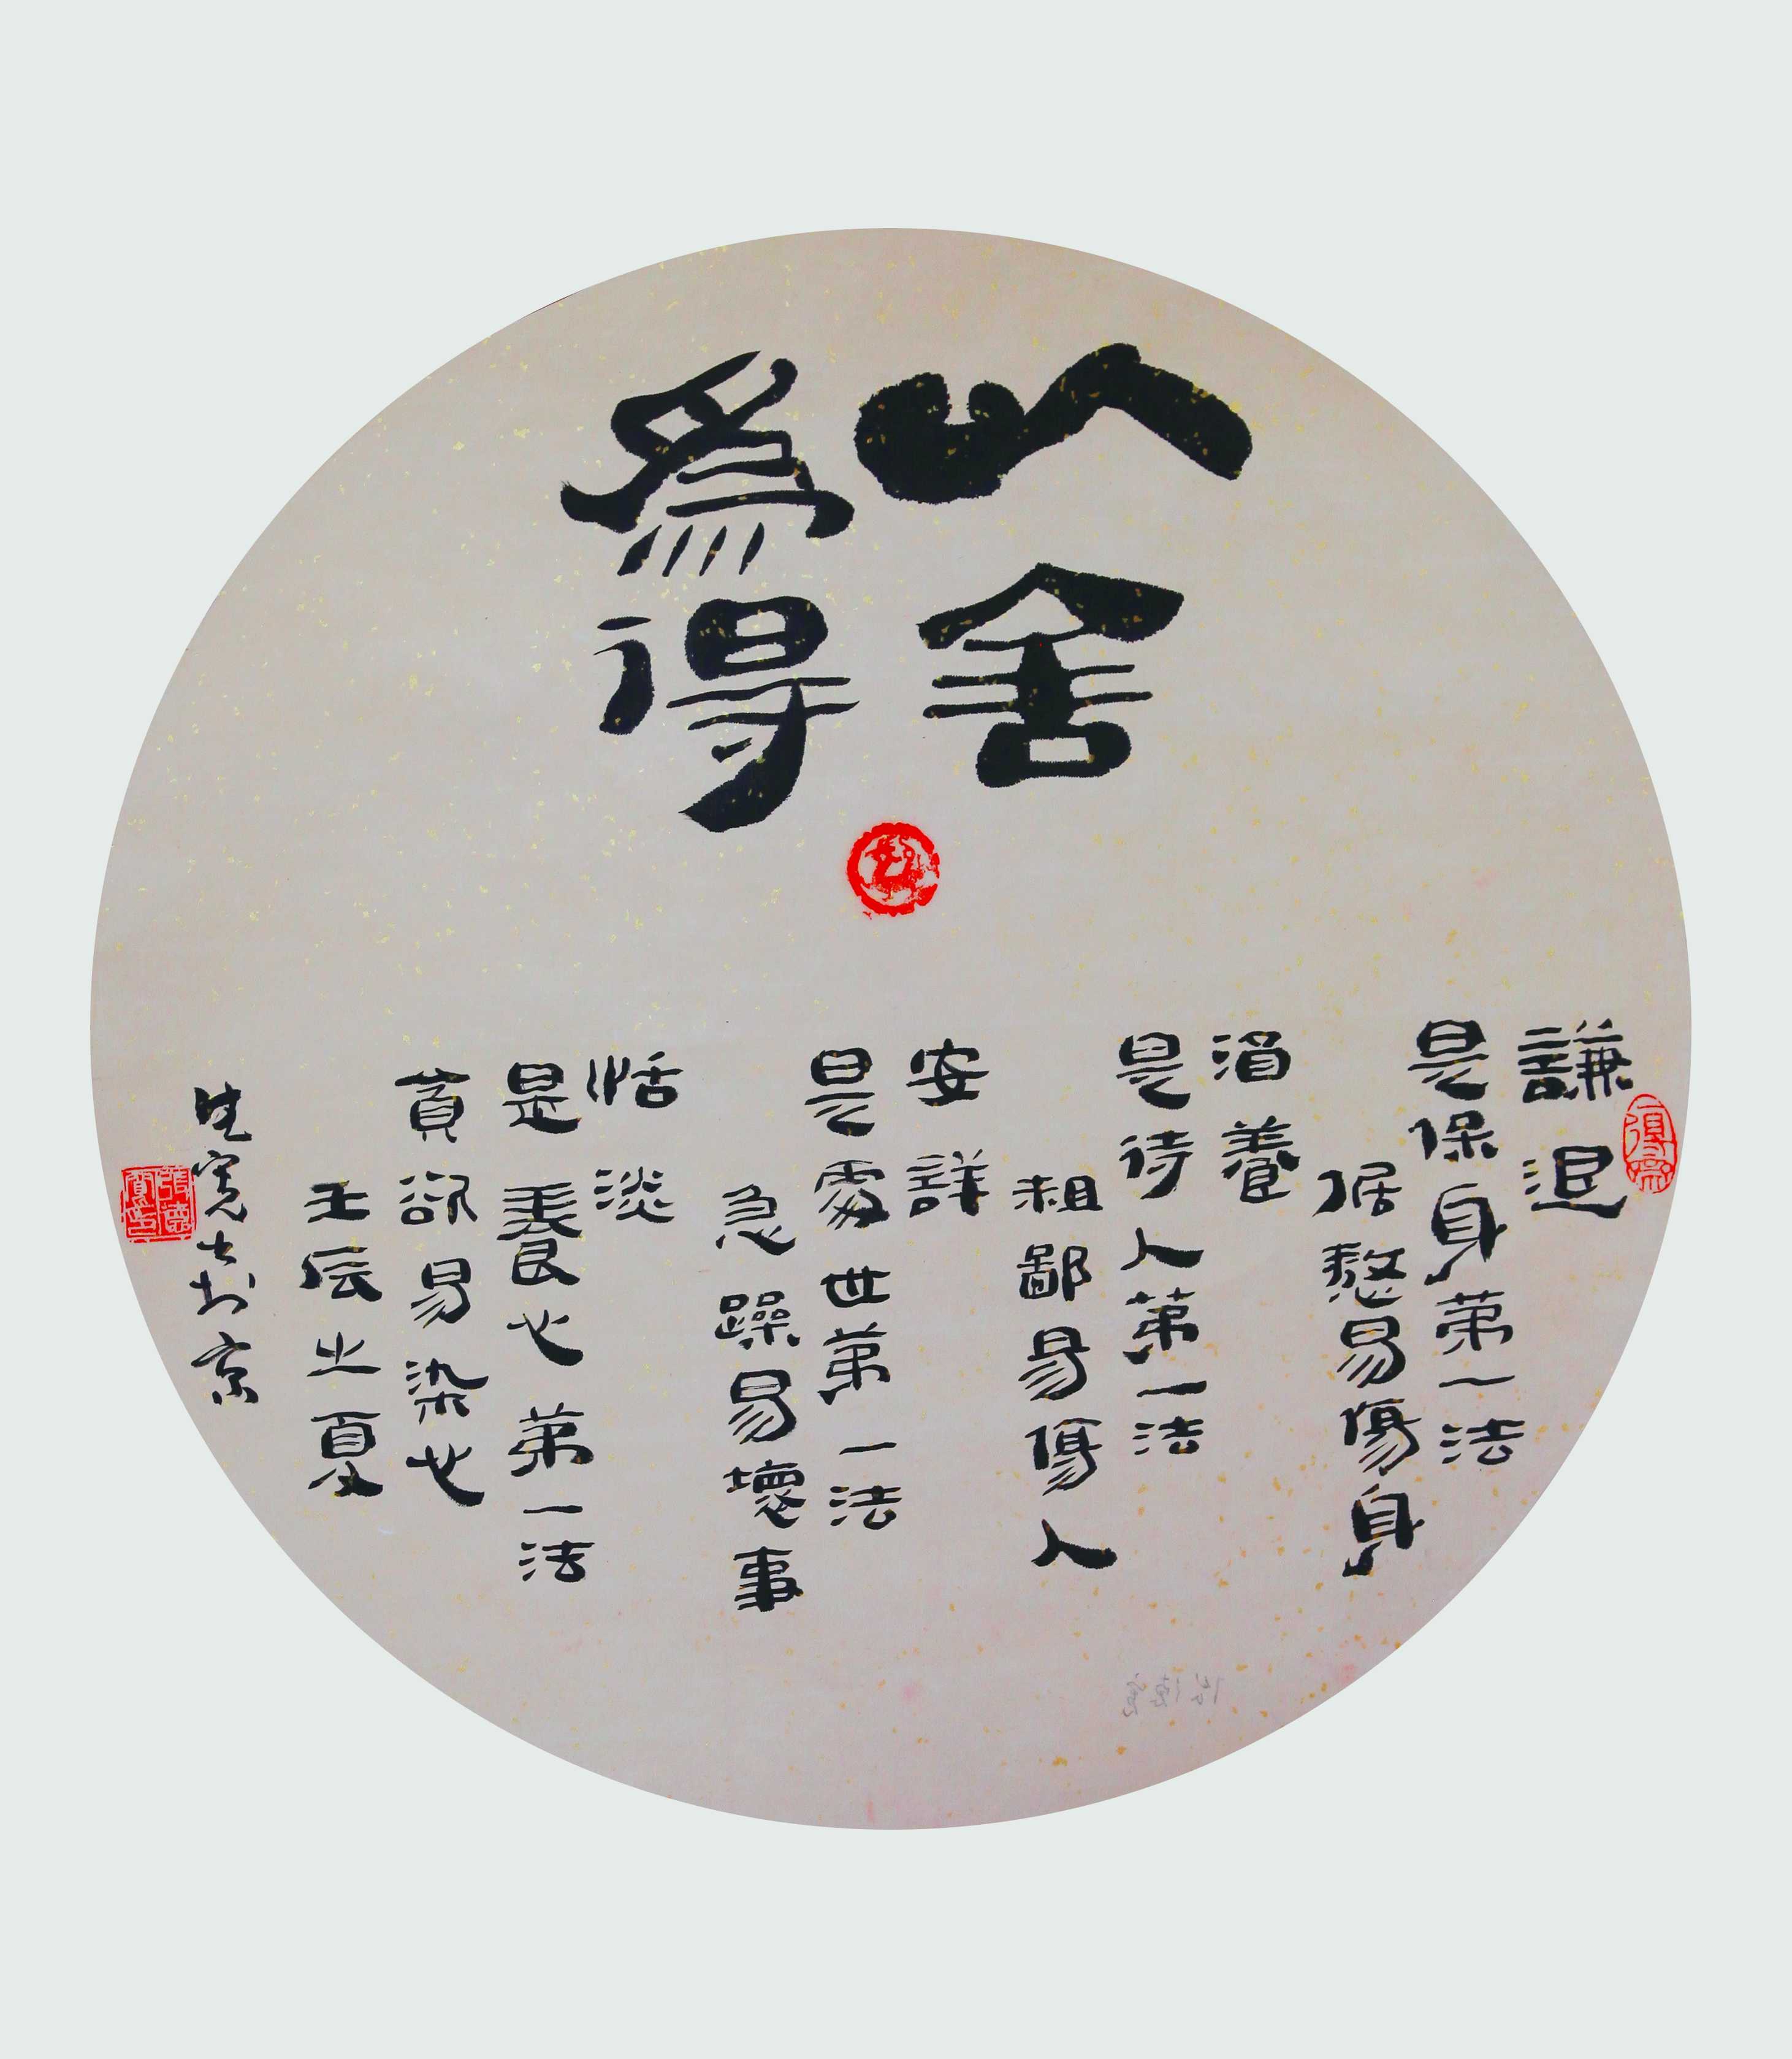 以舍
為得
謙退
是保身第一法
倨易傷身
涵養
是待人第一法
粗鄙易傷人
安詳
是處世第一法
急躁易壞事
恬淡
是養心第一法
貪欲易染心
壬辰之夏
德寬書於京
張德寬印